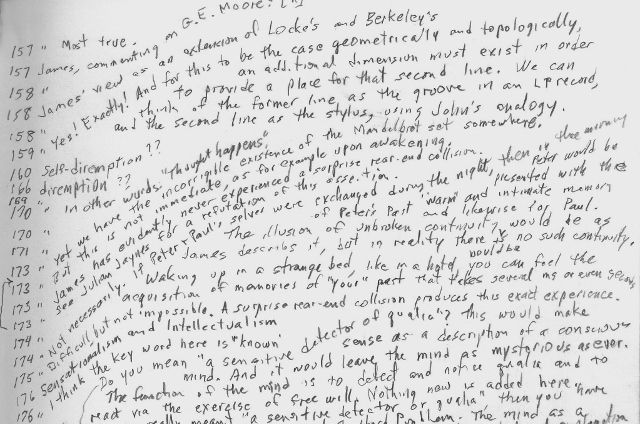 on G.E. Moore:
157 " Most true.
157 James, commenting
158 " James' view as an extension of Locke's and Berkeley's
158 " Yes! Exactly! And for this to be the case geometrically and topologically,
an additional dimension must exist in order
to provide a place for that second line. We can
158 " think of the former line as the groove in an LP record,
and the second line as the stylus, using John's analogy.
159 " existence of the Mandelbrot set somewhere.
160 self-diremption??
166 diremption??
169 " In other words: "thought happens"
170 " Yet we have the incorrigible
170 " But this is not immediate as for example upon awakening.
171 " James has evidently never experienced a surprise rear-end collision.
173 " See Julian Jaynes for a refutation of this assertion.
173 " Not necessarily. If Peter & Paul's selves were exchanged during the night, then in the morning
Peter would be presented with the "warm" and intimate memory
of Peter's Past and likewise for Paul.
The illusion of unbroken continuity would be as
James describes it, but in reality there would be no such continuity.
Waking up in a strange bed, like in a hotel, you can feel the
acquisition of memories of "your" past that takes several ms or even seconds
174 " Difficult but not impossible. A surprise rear-end collision produces this exact experience.
175 " Sensationalism and Intellectualism
176 " I think the key word here is "known"
176 " Do you mean "a sensitive detector of qualia"? This would make
sense as a description of a conscious
mind. And it would leave the mind as mysterious as ever.
The function of the mind is to detect and notice qualia and to
react via the exercise of free will. Nothing new is added here.
really meant "a sensitive detector of qualia" then you have
problem. The mind as a